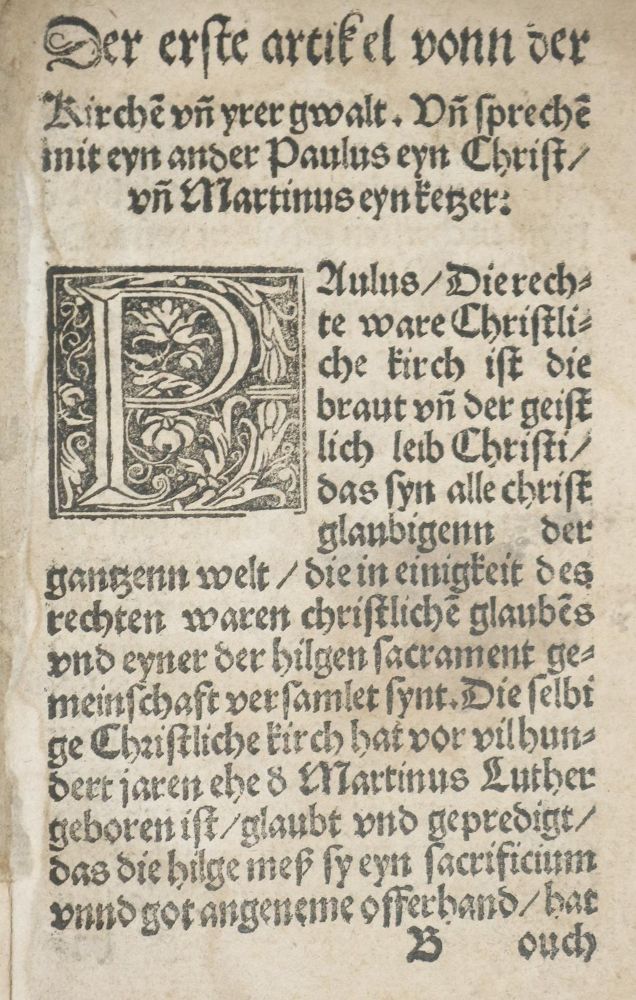 Der erste artikel vonn der
Kirchē vn̄ yrer gwalt. Vn̄ sprechē
mit eyn ander Paulus eyn Christ/
vn̄ Martinus eyn ketzer:
PAulus/Die rech⸗
te ware Christli⸗
che kirch ist die
braut vn̄ der geist
lich leib Christi/
das syn alle christ
glaubigenn der
gantzenn welt/die in einigkeit des
rechten waren christlichē glaubēs
vnd eyner der hilgen sacrament ge⸗
meinschaft versamlet synt.Die selbi
ge Christliche kirch hat vor vil hun⸗
dert jaren ehe d̕ Martinus Luther
geboren ist/glaubt vnd gepredigt/
das die hilge meß sy eyn sacrificium
vnnd got angeneme offerhand/hat
B ouch